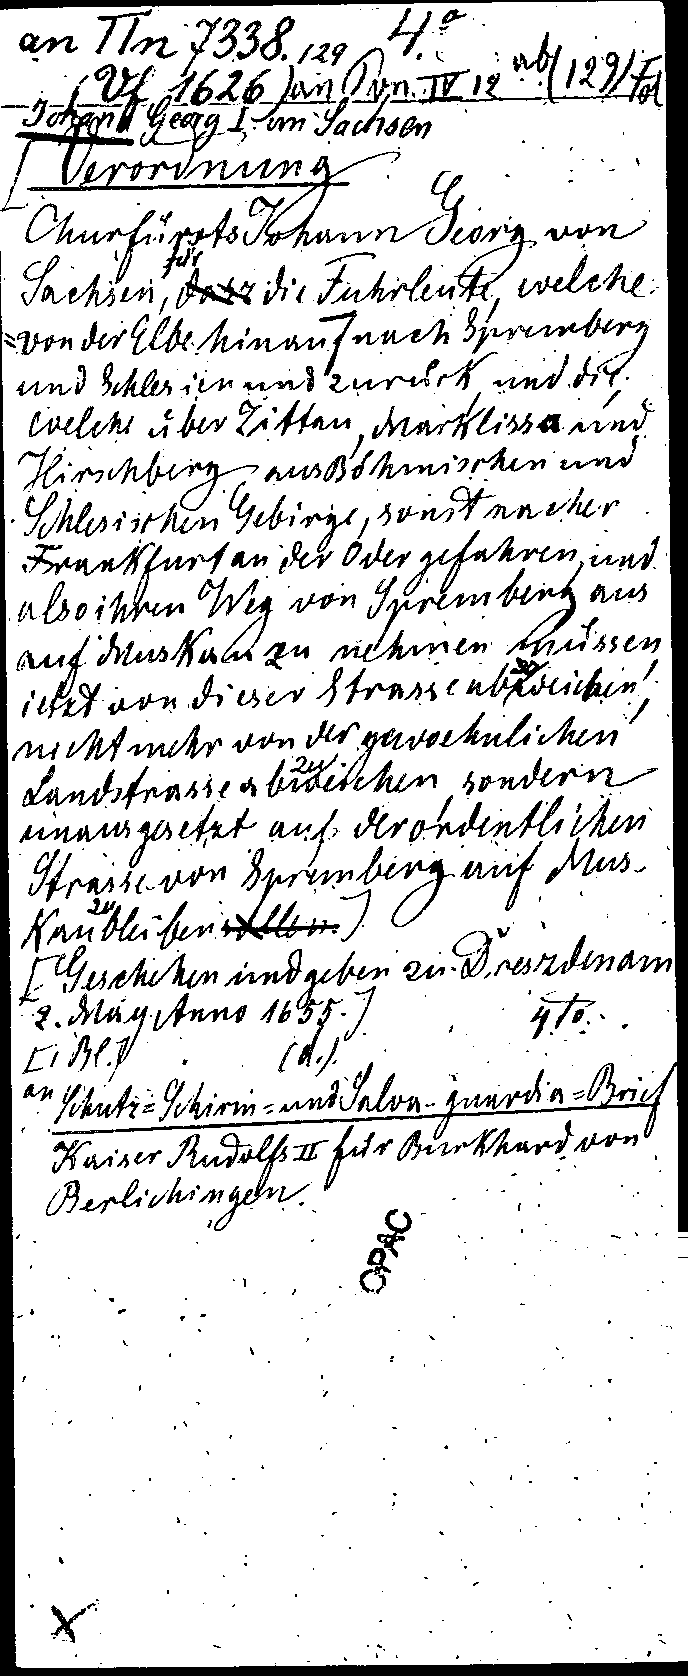 an IIn 7338.129 4.°
(Vf 1626) an Pon IV 12 ab (129) Fol
Johann Georg I. von Sachsen
[Verordnung
Churfürsts Johann Georg von
Sachsen, für dasz die Fuhrleute, welche
von der Elbe hinauf nach Spremberg
und Schlesien und zurück und die,
welche über Zittau, Marklissa und
Hirschberg aus Böhmischen und
Schlesischen Gebirge, sonst nacher
Frankfurt an der Oder gefahren, und
also ihren Weg von Spremberg aus
auf Muskau zu nehmen müssen
ietzt von dieser Strasse abzuweichen,
nicht mehr von der gewoehnlichen
Landstrasse abzuweichen sondern
unausgesetzt auf der ordentlichen
Strasse von Spremberg auf Mus-
kau zu bleiben sollen.]
[Geschehen und geben zu Dreszden am
2. May, Anno 1655.] 4to.
[1 Bl.] (d.)
an Schutz=Schirm=und Salva-guardia=Brief
Kaiser Rudolfs II für Burkhard von
Berlichingen.
OPAC
X